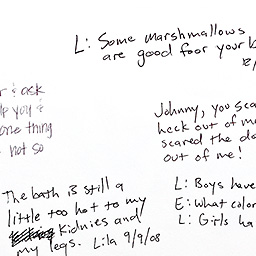 L: Some marshmallows
are good foor your b
& ask
you &
one thing
not so
Johnny, you sca
heck out of me
scared the da
out of me!
The bath is still a
little too hot to my
kidnies and
my legs. Lila 9/9/08
L: Boys have
E: What color
L: Girls ha